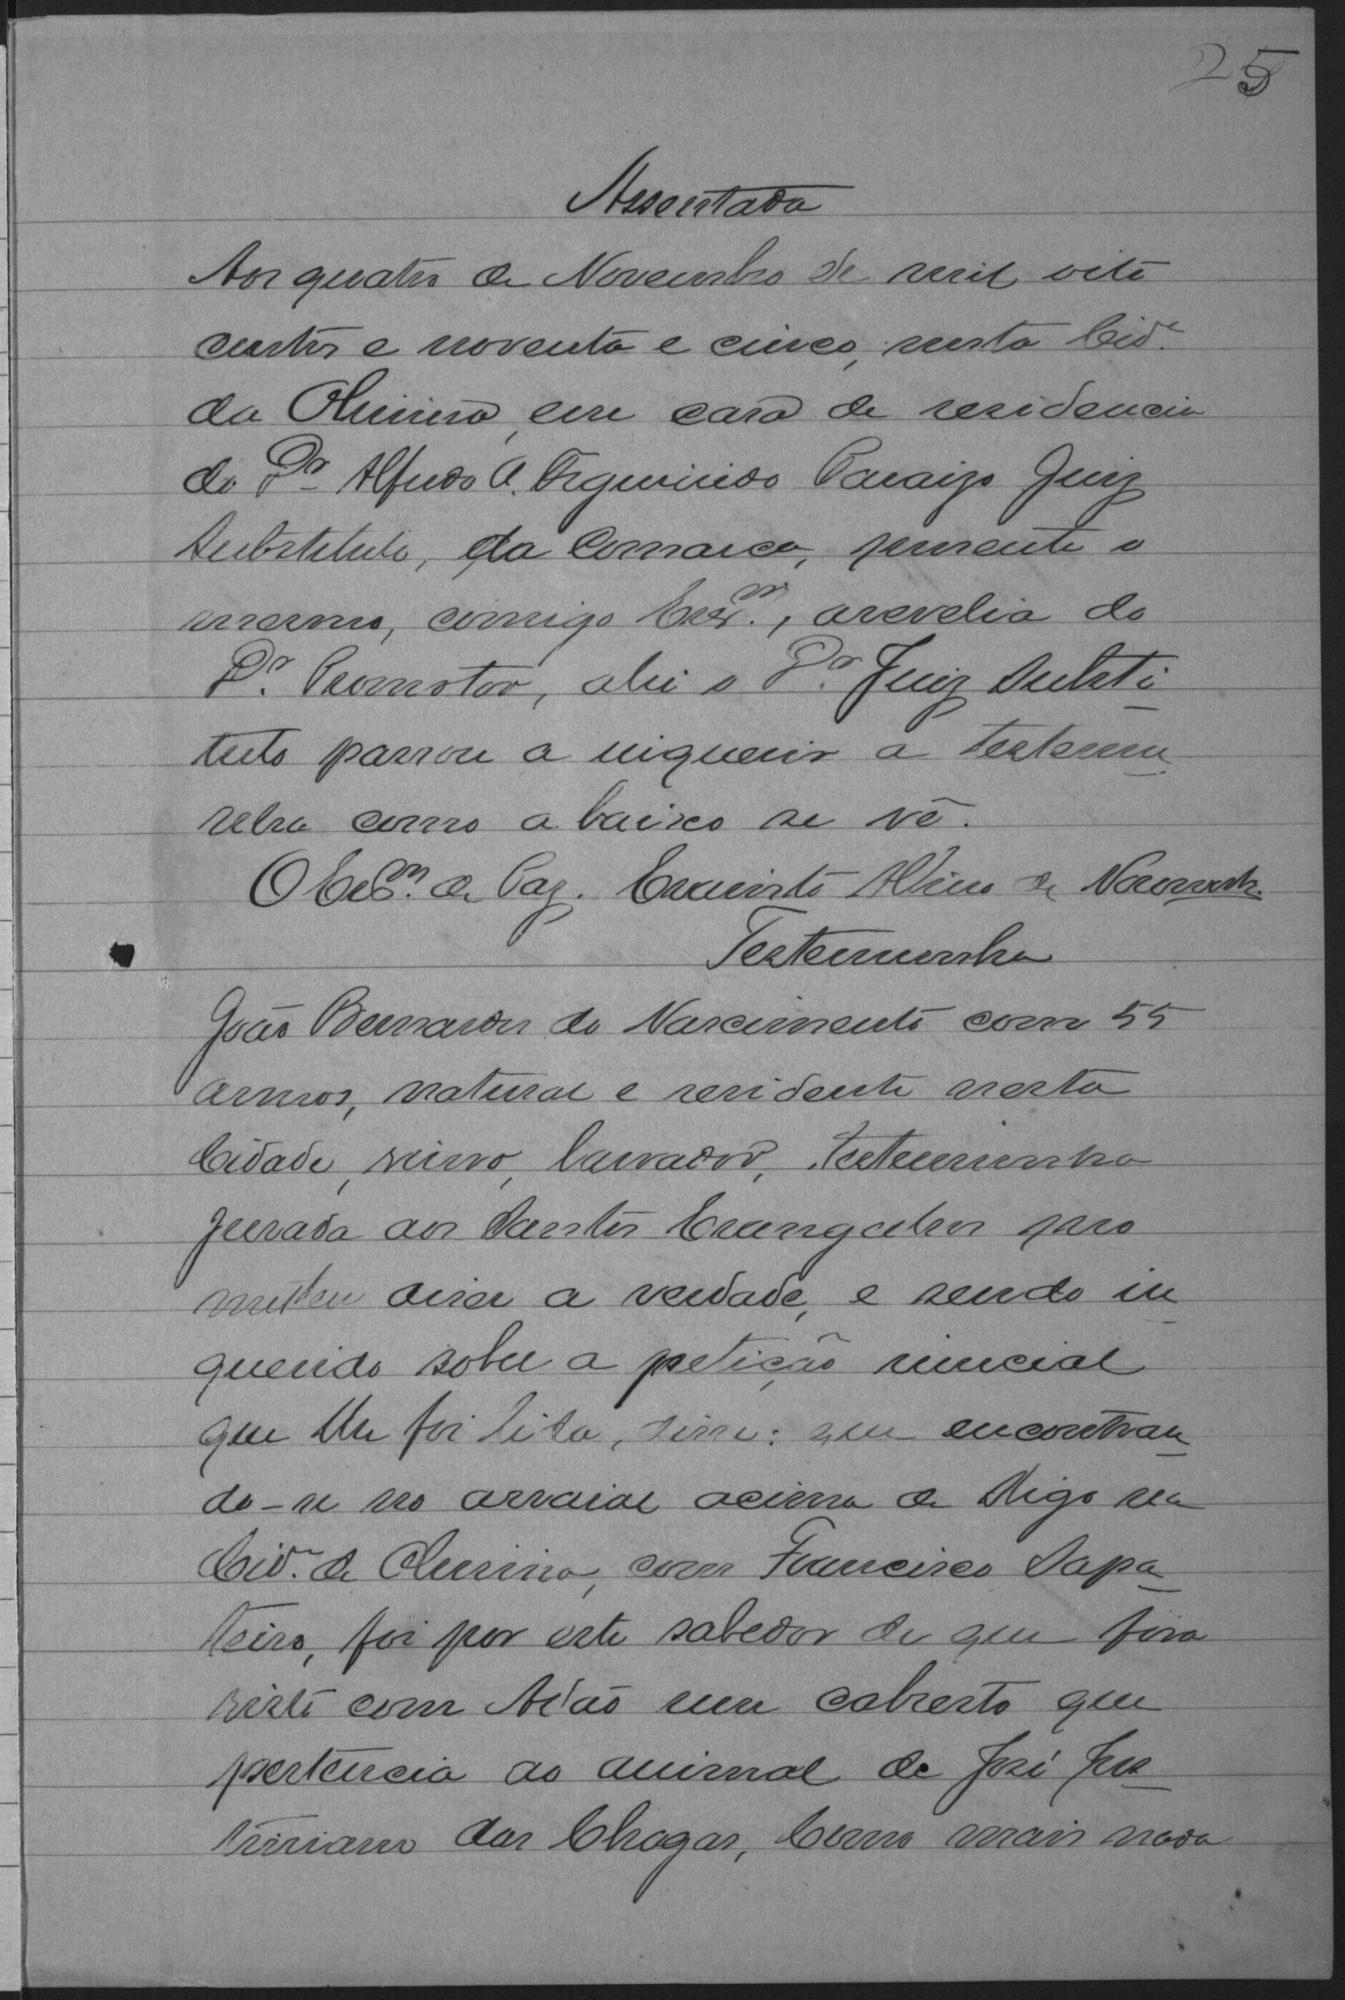 25
Assentada
Aos quatro de Novembro de mil oito
centos e noventa e cinco, nesta Cid.e
da Oliveira, em casa de residencia
do Dr. Alfredo A. Figueiredo Paraizo Juiz
Substituto, da Comarca, presente o
mesmo, comigo Escr.m, a revelia do
Dr. Promotor, ahi o Dr. Juiz Substi
tuto passou a inquerir a testemu
nha como a baixo se vê.
O Escr.m de Paz. Evaristo Albino de Noronha
Testemunha
João Bernardes do Nascimento com 55
annos, natural e residente nesta
Cidade, viuvo, lavrador, testemunha
jurada aos Santos Evangelhos pro
metteu diser a verdade, e sendo in
querido sobre a petição inicial
que lhe foi lida, disse: que encontran
do-se no arraial acima digo na
Cid.e de Oliveira, com Francisco Sapa
teiro, foi por este sabedor de que fora
visto com Adão um cabresto que
pertencia ao animal de José Jus
tiniano das Chagas, Como mais nada